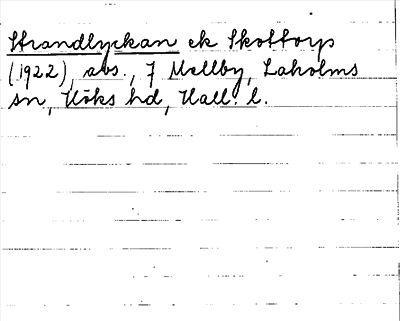 Strandlyckan ek Skottorp
(1922) avs., 7 Mellby, Laholms
sn, Höks hd, Hall. l.